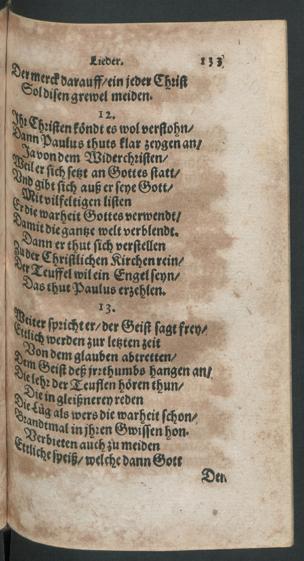 Lieder. 133
Der merck darauff/ein jeder Christ
Sol disen grewel meiden.
12.
Ihr Christen köndt es wol verstohn/
Dann Paulus thuts klar zeygen an/
Ja von dem Widerchristen/
Weil er sich setzt an Gottes statt/
Vnd gibt sich auß er seye Gott/
Mit vilfeltigen listen
Er die warheit Gottes verwendt/
Damit die gantze welt verblendt.
Dann er thut sich verstellen
Zu der Christlichen Kirchen rein/
Der Teuffel wil ein Engel seyn/
Das thut Paulus erzehlen.
13.
Weiter spricht er/der Geist sagt frey/
Ettlich werden zur letzten zeit
Von dem glauben abtretten/
Dem Geist deß jrrthumbs hangen an/
Die lehr der Teuflen hören thun/
Die in gleißnerey reden
Die Lüg als wers die warheit schon/
Brandtmal in jhren Gwissen hon.
Verbieten auch zu meiden
Ettliche speiß/ welche dann Gott
Der